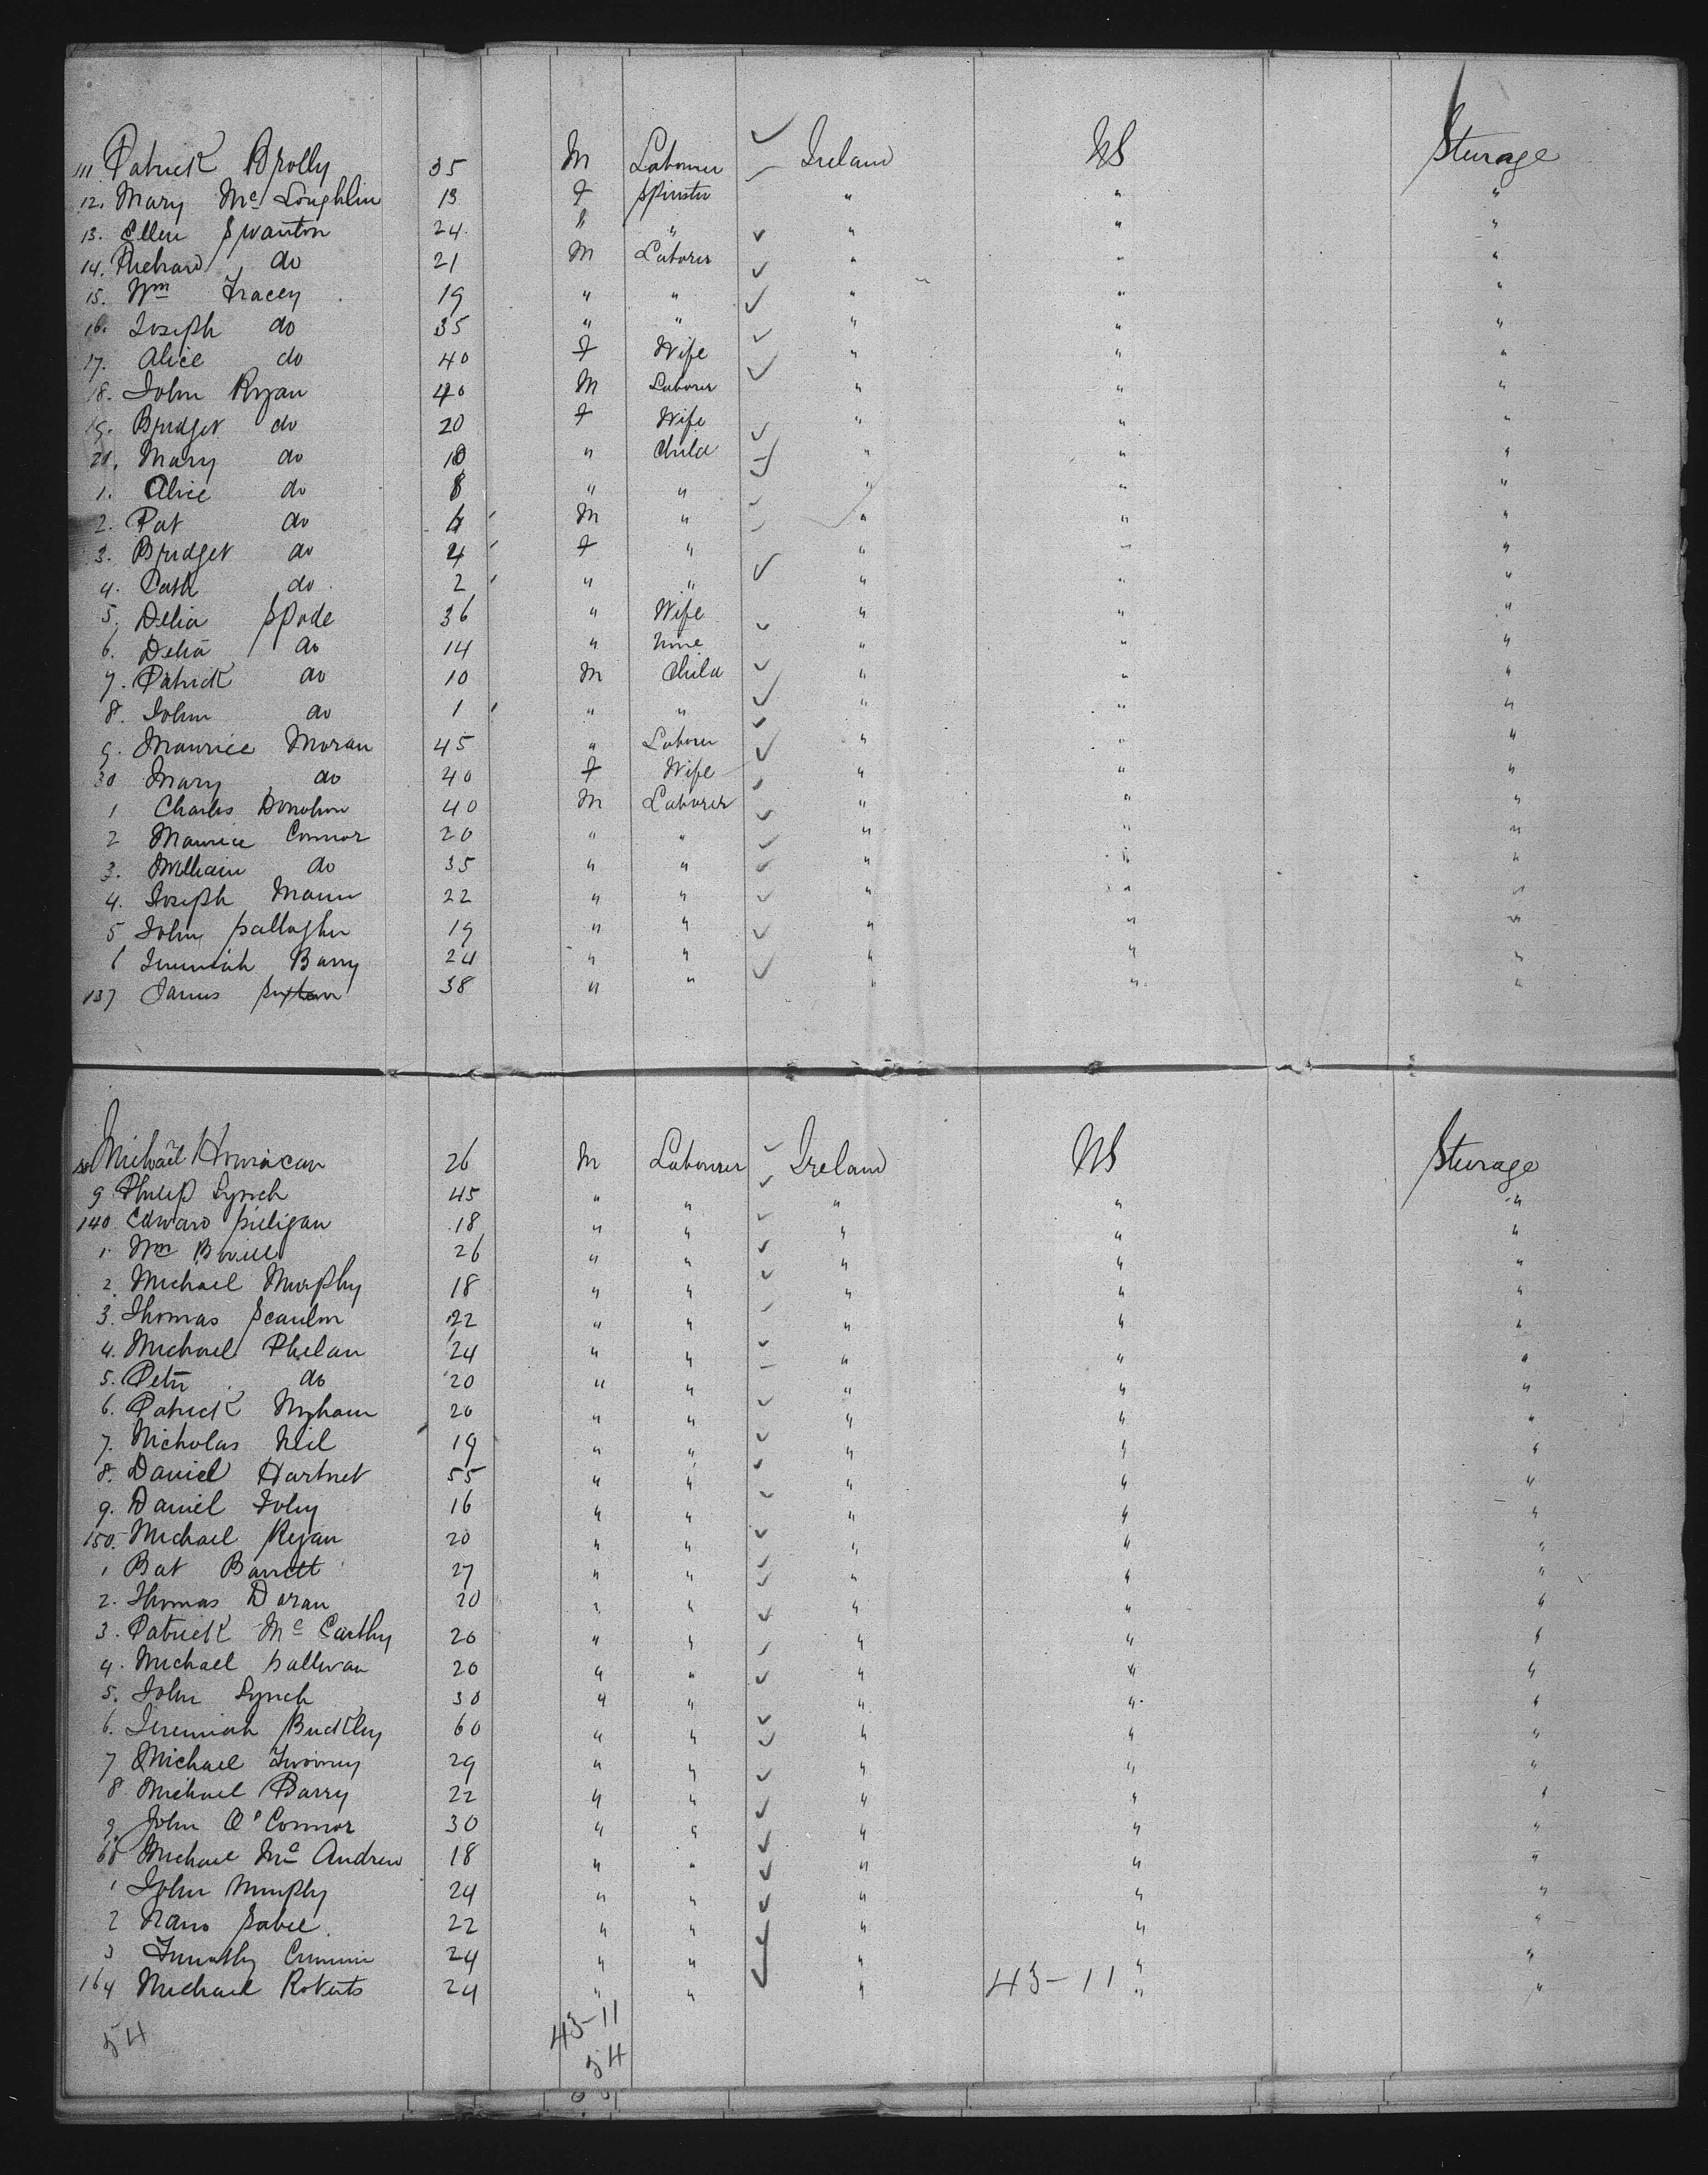 111 Patrick Brolly 35 M Labourer Ireland US Steerage
12. Mary Mc Loughlin 13 F Spinster " " "
13. Ellen Swanton 24 " " " " "
14. Richard do 21 M Laborer " " "
15. Wm Tracey 19 " " " " "
16. Joseph do 35 " " " " "
17. Alice do 40 F Wife " " "
18. John Ryan 40 M Laborer " " "
19. Bridget do 20 F Wife " " "
20. Mary do 10 " Child " " "
1. Alice do 8 " " " " "
2. Pat do 6 M " " " "
3. Bridget do 4 F " " " "
4. Cath do 2 " " " " "
5. Delia Spode 36 " Wife " " "
6. Delia do 14 " None " " "
7. Patrick do 10 M Child " " "
8. John do 1 " " " " "
9. Maurice Moran 45 " Laborer " " "
30 Mary do 40 F Wife " " "
1 Charles Donohue 40 M Laborer " " "
2 Maurice Connor 20 " " " " "
3. William do 35 " " " " "
4. Joseph Mann 22 " " " " "
5 John Gallagher 19 " " " " "
6 Jeremiah Barry 24 " " " " "
137 James Sexton 38 " " " " "
Michael Hourican 26 M Labourer Ireland US Steerage
9 Philip Lynch 45 " " " " "
140 Edward 18 " " " " "
1. Wm 26 " " " " "
2. Michael Murphy 18 " " " " "
3. Thomas Scanlon 22 " " " " "
4. Michael Phelan 24 " " " " "
5. Peter do 20 " " " " "
6. Patrick Nyhan 20 " " " " "
7. Nicholas Neil 19 " " " " "
8. Daniel Hartnet 55 " " " " "
9. Daniel Foley 16 " " " " "
150. Michael Regan 20 " " " " "
1 Bat Barrett 27 " " " " "
2. Thomas Doran 20 " " " " "
3. Patrick Mc Carthy 20 " " " " "
4. Michael Sullivan 20 " " " " "
5. John Lynch 30 " " " " "
6. Jeremiah Buckley 60 " " " " "
7 Michael Twomey 29 " " " " "
8 Michael Barry 22 " " " " "
9. John O'Connor 30 " " " " "
60 Michael Mc Andrew 18 " " " " "
1 John Murphy 24 " " " " "
2 22 " " " " "
3 Timothy 24 " " " " "
164 Michael Roberts 24 " " " 43-11 " "
54 43-11
54